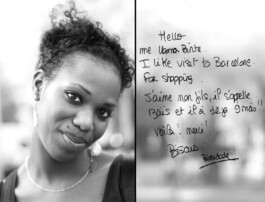 Hello
me
I like visit to Barcelone.
For shopping
J'aime mon fils, il s'appelle
et il à deja 9 mois!!
voilà! merci!
Bisous